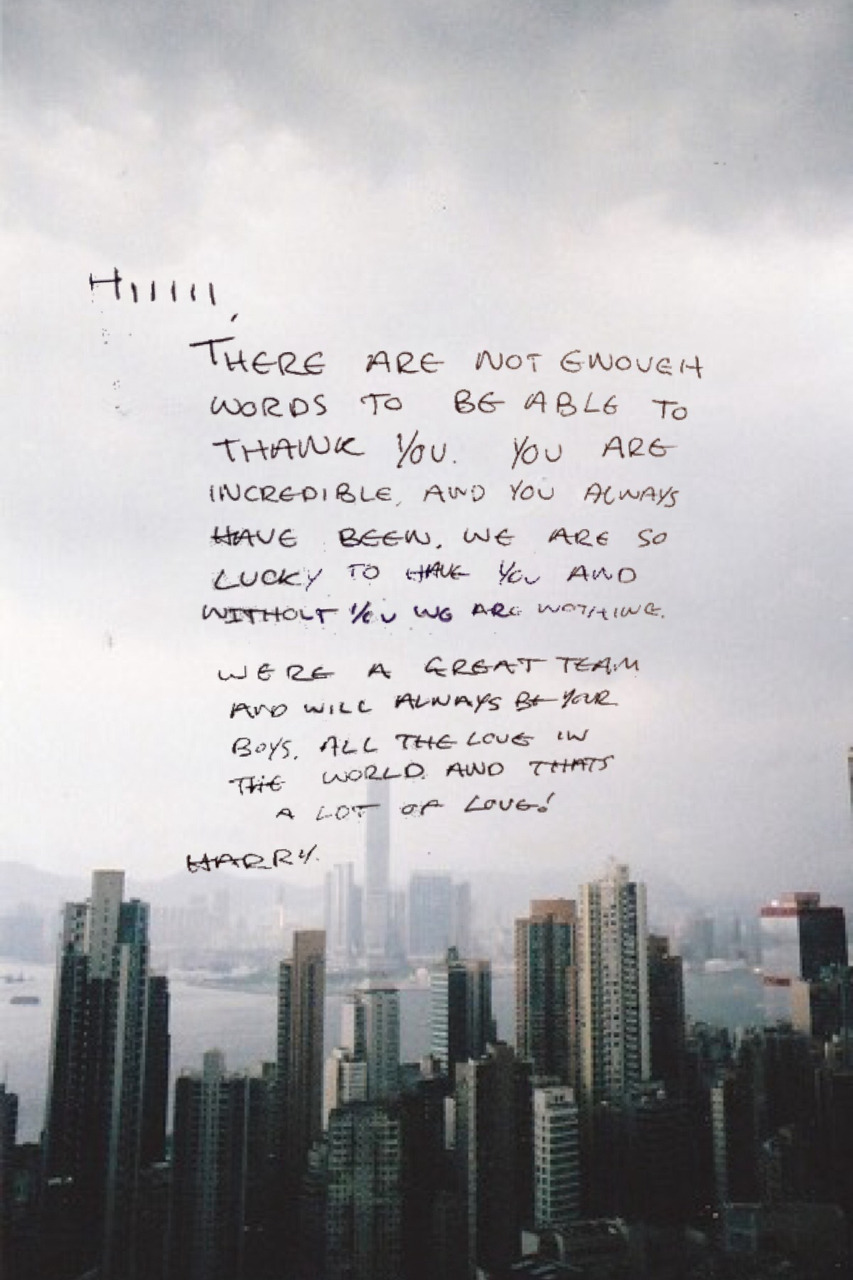 HIIIIII,
THERE ARE NOT ENOUGH
WORDS TO BE ABLE TO
THANK YOU. YOU ARE
INCREDIBLE, AND YOU ALWAYS
HAVE BEEN. WE ARE SO
LUCKY TO HAVE YOU AND
WITHOUT YOU WE ARE NOTHING.
WERE A GREAT TEAM
AND WILL ALWAYS BE YOUR
BOYS. ALL THE LOVE IN
THE WORLD AND THATS
A LOT OF LOVE!
HARRY.